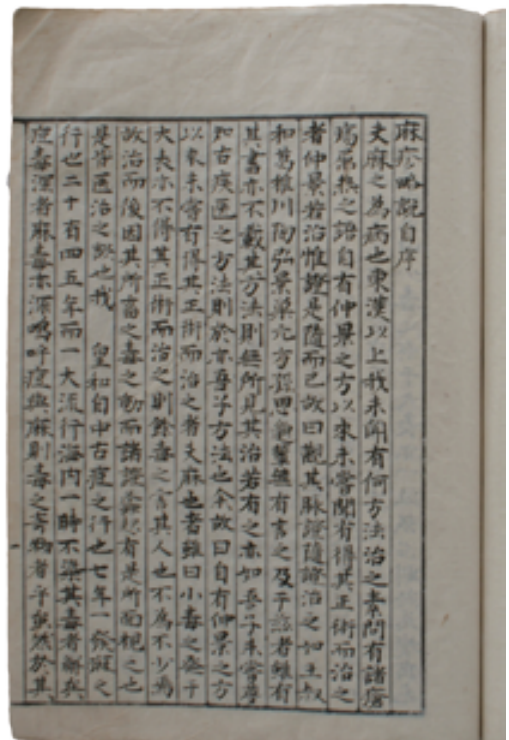 麻疹略說自序
夫麻之為病也東漢以上我未聞有何方法治之素問有諸瘡
瘍 之語自有仲景之方以來未嘗聞有得其正術而治之
者仲景若治惟證是隨而已故曰觀其脈證隨證治之如王叔
和葛稚川陶弘景 元方孫思邈 無有言之及于 者雖有
其書亦不載其方法則無所見其治若有之亦如吾子未嘗
知古疾醫之方法則於亦吾子方法也余故曰自有仲景之方
以來未嘗有得其正術而治之者夫麻也者雖曰小毒之 于
大 亦不得其正術而治之則餘毒之害其人也不為不少焉
故治而後因其所畜之毒之動而諸證 有是所面 之也
是皆醫治之 也我 皇和自中古痘之行也七年一發 之
行也二十有四五年而一大流行海內一時不染其毒者 矣
痘毒深者麻毒亦深嗚呼痘與麻則毒之 者乎雖然於其